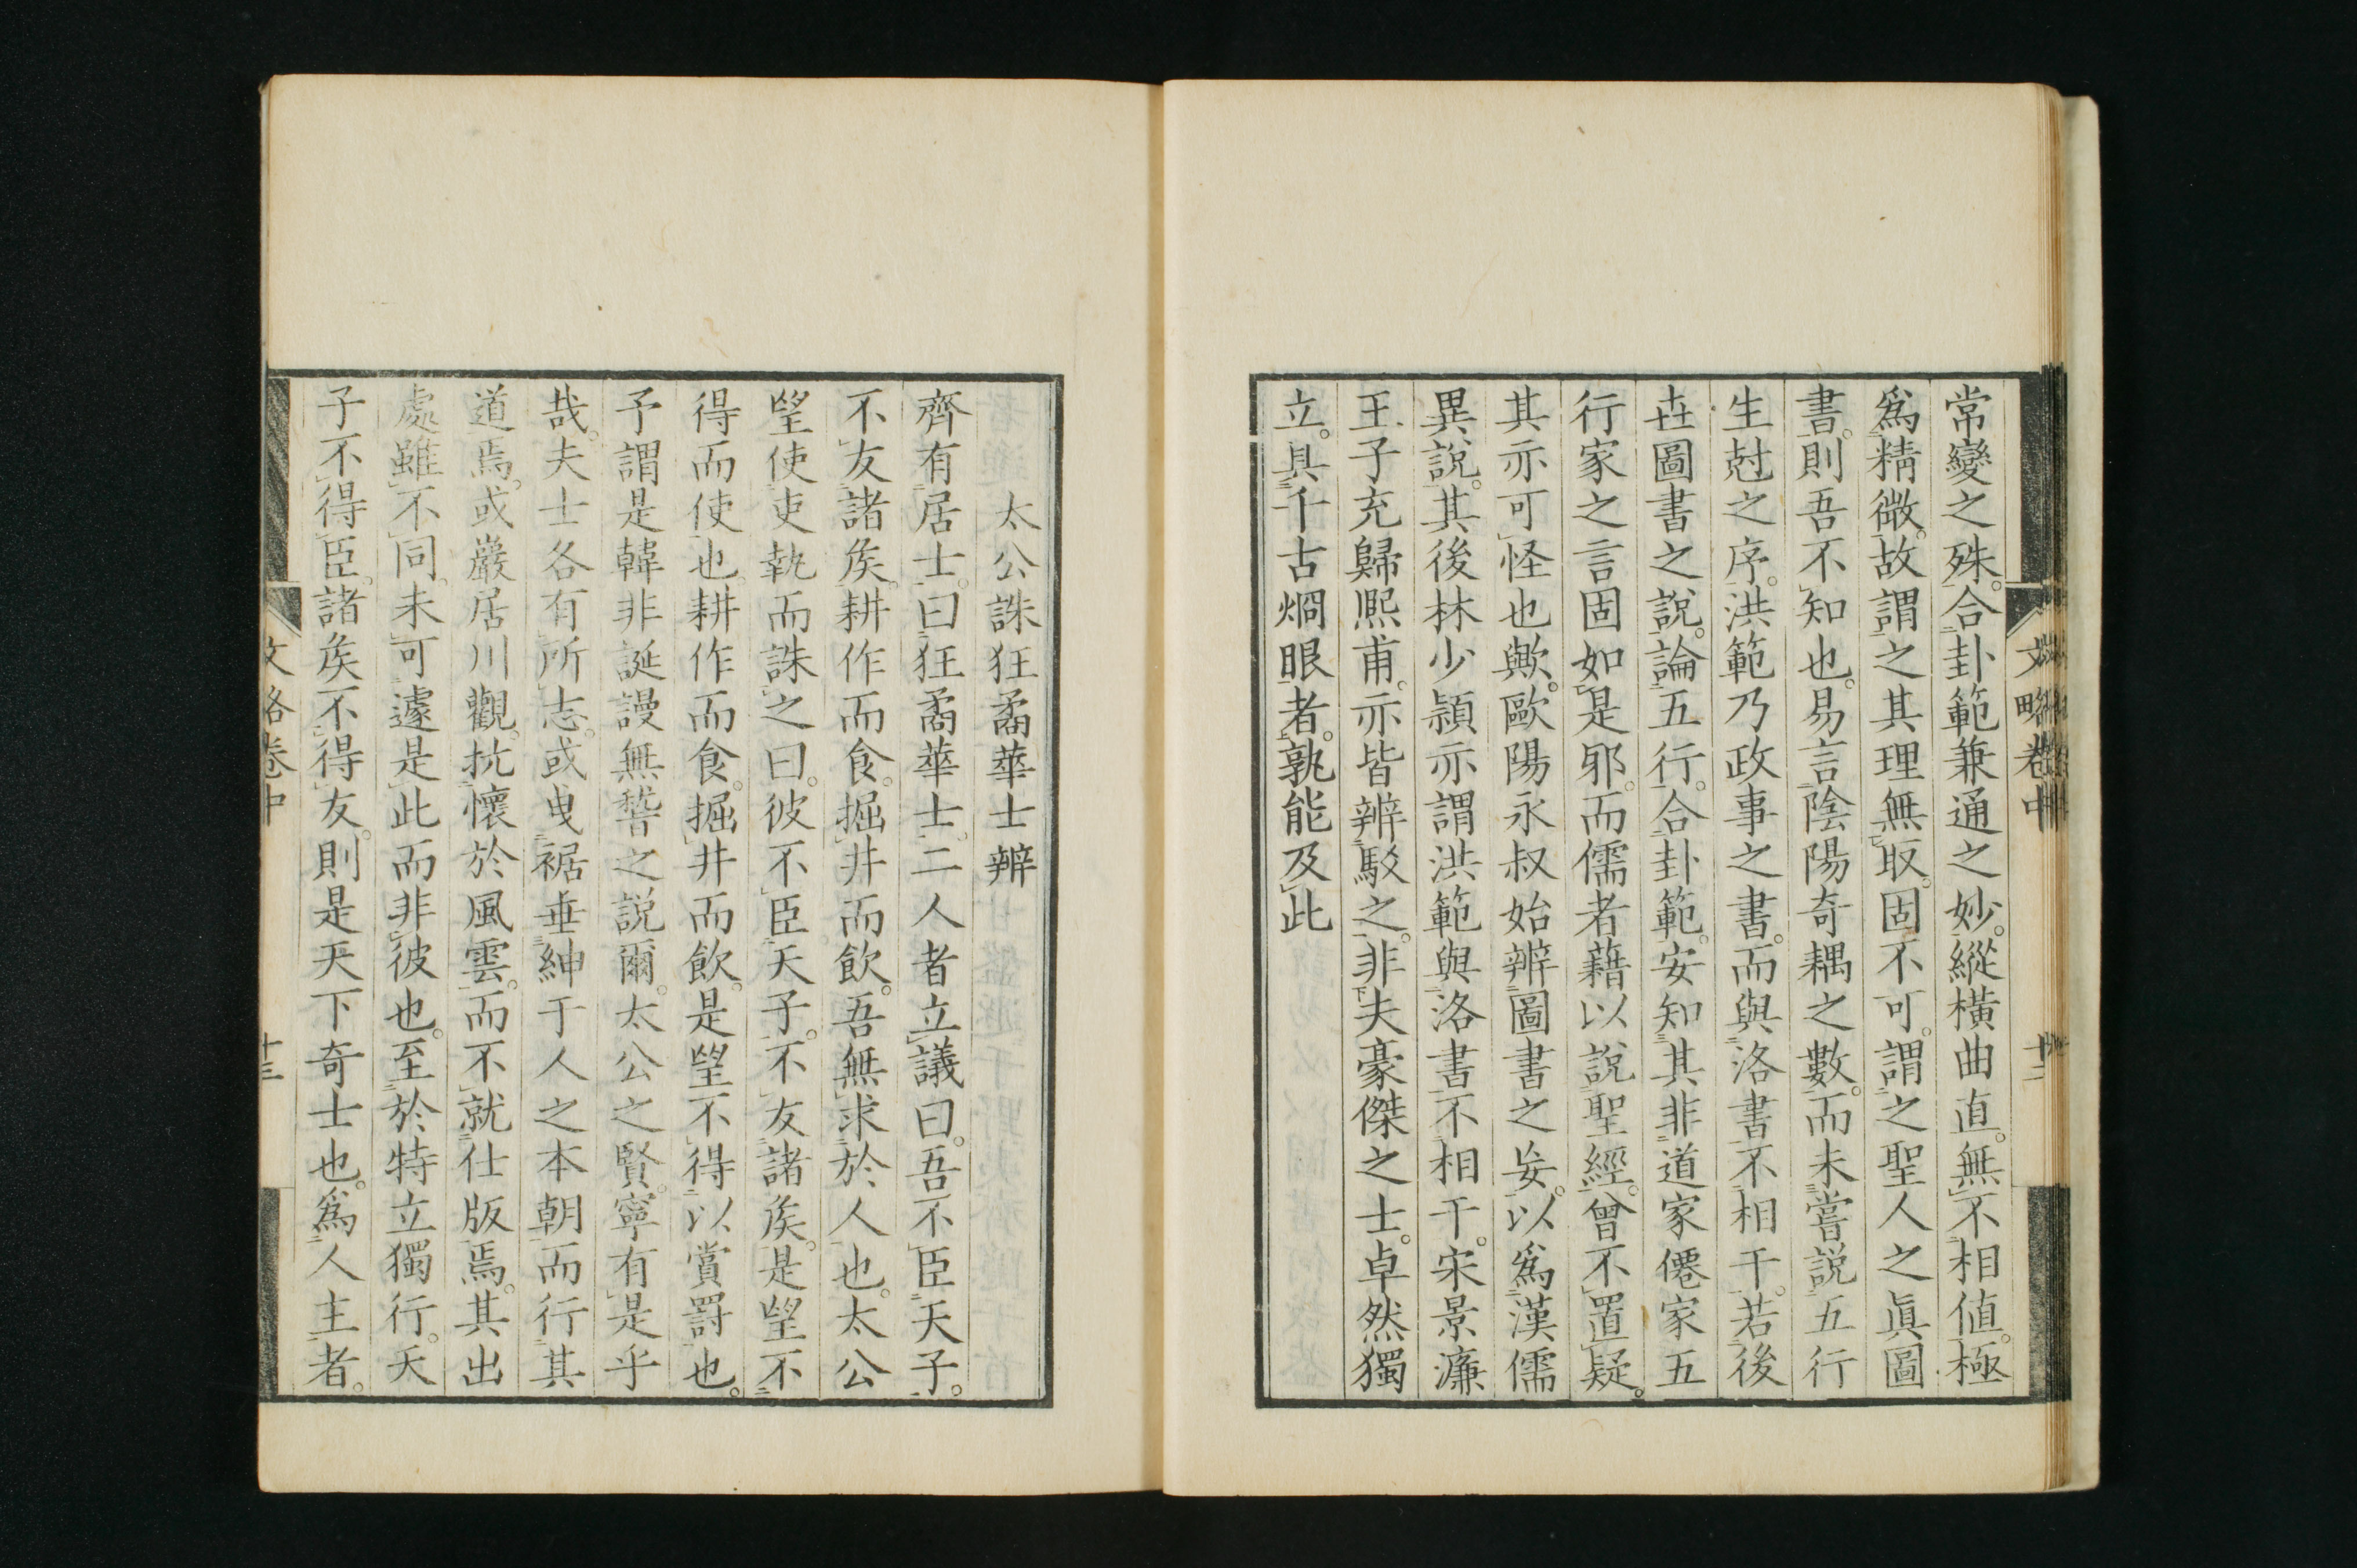 文略卷中 十二
常變之殊。合卦範兼通之妙。縱橫曲直。無不相値。極
爲精微。故謂之其理無取。固不可。謂之聖人之眞圖
書。則吾不知也。易言陰陽奇耦之數。而未嘗説五行
生尅之序。洪範乃政事之書。而與洛書不相干。若後
丗圖書之說。論五行。合卦範。安知其非道家僊家五
行家之言固如是邪。而儒者藉以說聖經。曾不置疑。
其亦可怪也歟。歐陽永叔始辨圖書之妄。以爲漢儒
異說。其後林少頴亦謂洪範與洛書不相干。宋景濂
王子充歸熈甫。亦皆辨駁之。非夫豪傑之士。卓然獨
立。具千古烱眼者。孰能及此
太公誅狂矞華士辨
齊有居士。曰狂矞華士。二人者立議曰。吾不臣天子。
不友諸矦。耕作而食。掘井而飲。吾無求於人也。太公
望使吏執而誅之曰。彼不臣天子。不友諸矦。是望不
得而使也。耕作而食。掘井而飲。是望不得以賞罰也。
予謂是韓非誕謾無稽之説爾。太公之賢。寧有是乎
哉。夫士各有所志。或曳裾垂紳于人之本朝而行其
道焉。或巖居川觀。抗懷於風雲。而不就仕版焉。其出
處雖不同。未可遽是此而非彼也。至於特立獨行。天
子不得臣。諸矦不得友。則是天下奇士也。爲人主者。
文略卷中 十三